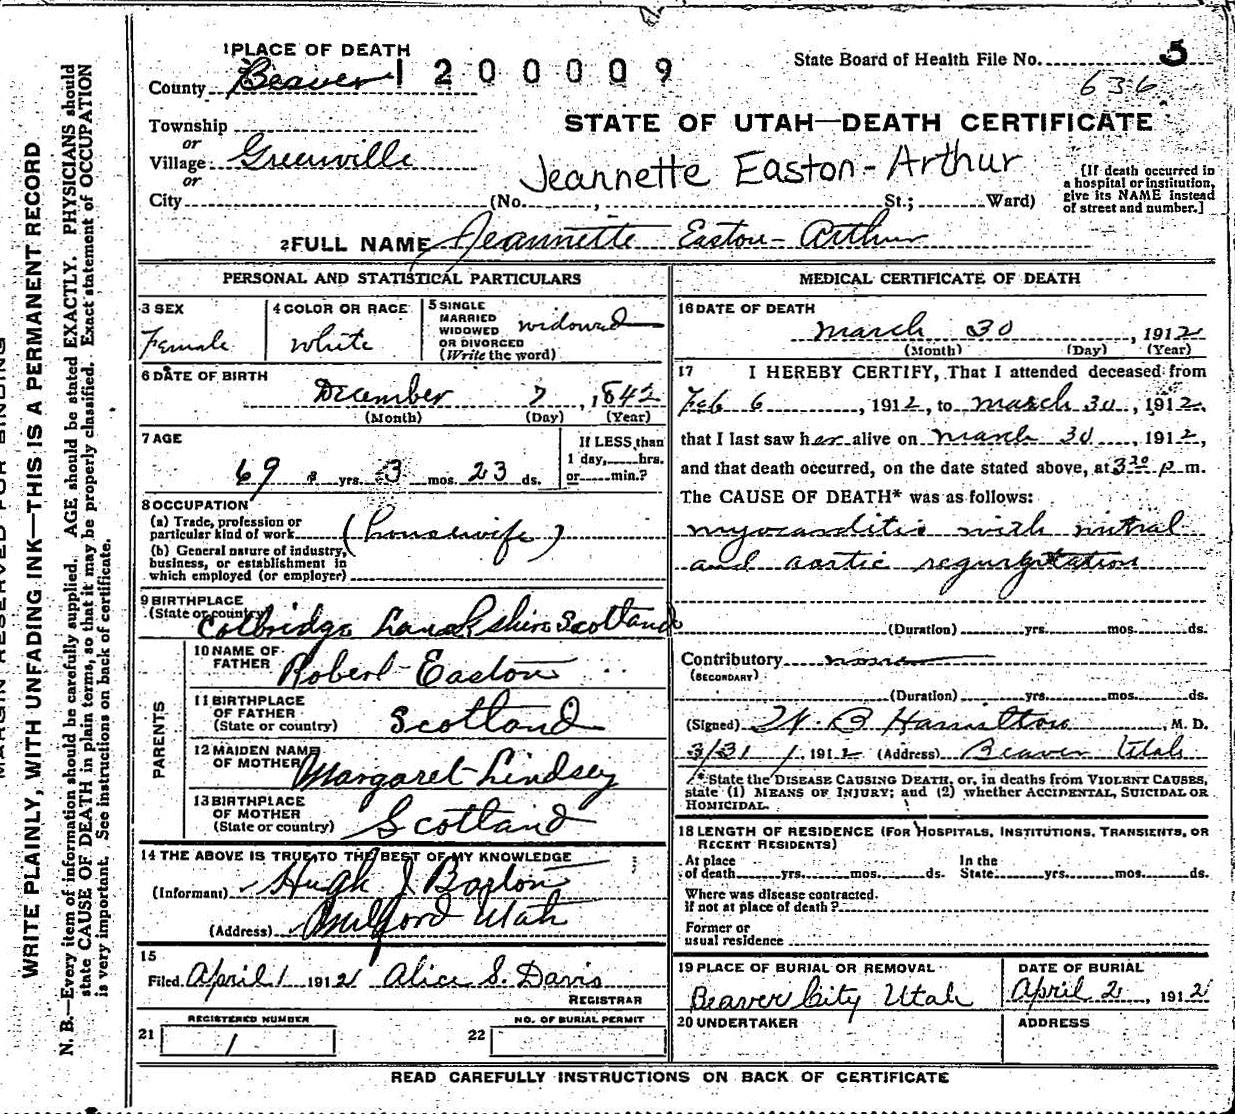 1 PLACE OF DEATH
County Beaver 1200009
State Board of Health File No. 5
636
Township
or
Village Greenville
or
City
STATE OF UTAH—DEATH CERTIFICATE
Jeannette Easton-Arthur
(No. , St.; Ward)
[If death occurred in
a hospital or institution,
give its NAME instead
of street and number.]
2 FULL NAME Jeannette Easton-Arthur
PERSONAL AND STATISTICAL PARTICULARS
3 SEX
Female
4 COLOR OR RACE
White
5 SINGLE
MARRIED
WIDOWED
OR DIVORCED
(Write the word)
widowed
6 DATE OF BIRTH
December 7, 1842
(Month) (Day) (Year)
7 AGE
69 yrs. 3 mos. 23 ds.
If LESS than
1 day, hrs.
or min.?
8 OCCUPATION
(a) Trade, profession or
particular kind of work (housewife)
(b) General nature of industry,
business, or establishment in
which employed (or employer)
9 BIRTHPLACE
(State or country)
Colbridge Lanarkshire Scotland
PARENTS
10 NAME OF
FATHER
Robert Easton
11 BIRTHPLACE
OF FATHER
(State or country)
Scotland
12 MAIDEN NAME
OF MOTHER
Margaret Lindsey
13 BIRTHPLACE
OF MOTHER
(State or country)
Scotland
14 THE ABOVE IS TRUE TO THE BEST OF MY KNOWLEDGE
(Informant) Hugh J
(Address) Milford Utah
15
Filed April 1 1912 Alice S. Davis
REGISTRAR
21 REGISTERED NUMBER
1
22 NO. OF BURIAL PERMIT
MEDICAL CERTIFICATE OF DEATH
16 DATE OF DEATH
March 30, 1912
(Month) (Day) (Year)
17 I HEREBY CERTIFY, That I attended deceased from
Feb 6, 1912, to March 30, 1912,
that I last saw her alive on March 30, 1912,
and that death occurred, on the date stated above, at 3 30 P m.
The CAUSE OF DEATH* was as follows:
myocarditis with mitral
and aortic regurgitation
(Duration) yrs. mos. ds.
Contributory none
(SECONDARY)
(Duration) yrs. mos. ds.
(Signed) W. B Hamilton M. D.
3/31, 1912 (Address) Beaver Utah
*State the DISEASE CAUSING DEATH, or, in deaths from VIOLENT CAUSES,
state (1) MEANS OF INJURY; and (2) whether ACCIDENTAL, SUICIDAL OR
HOMICIDAL.
18 LENGTH OF RESIDENCE (FOR HOSPITALS, INSTITUTIONS, TRANSIENTS, OR
RECENT RESIDENTS)
At place
of death yrs. mos. ds.
In the
State yrs. mos. ds.
Where was disease contracted.
if not at place of death?
Former or
usual residence
19 PLACE OF BURIAL OR REMOVAL
Beaver City Utah
DATE OF BURIAL
April 2, 1912
20 UNDERTAKER
ADDRESS
READ CAREFULLY INSTRUCTIONS ON BACK OF CERTIFICATE
MARGIN RESERVED FOR BINDING
WRITE PLAINLY, WITH UNFADING INK—THIS IS A PERMANENT RECORD
N. B.—Every item of information should be carefully supplied. AGE should be stated EXACTLY. PHYSICIANS should
state CAUSE OF DEATH in plain terms, so that it may be properly classified. Exact statement of OCCUPATION
is very important. See instructions on back of certificate.